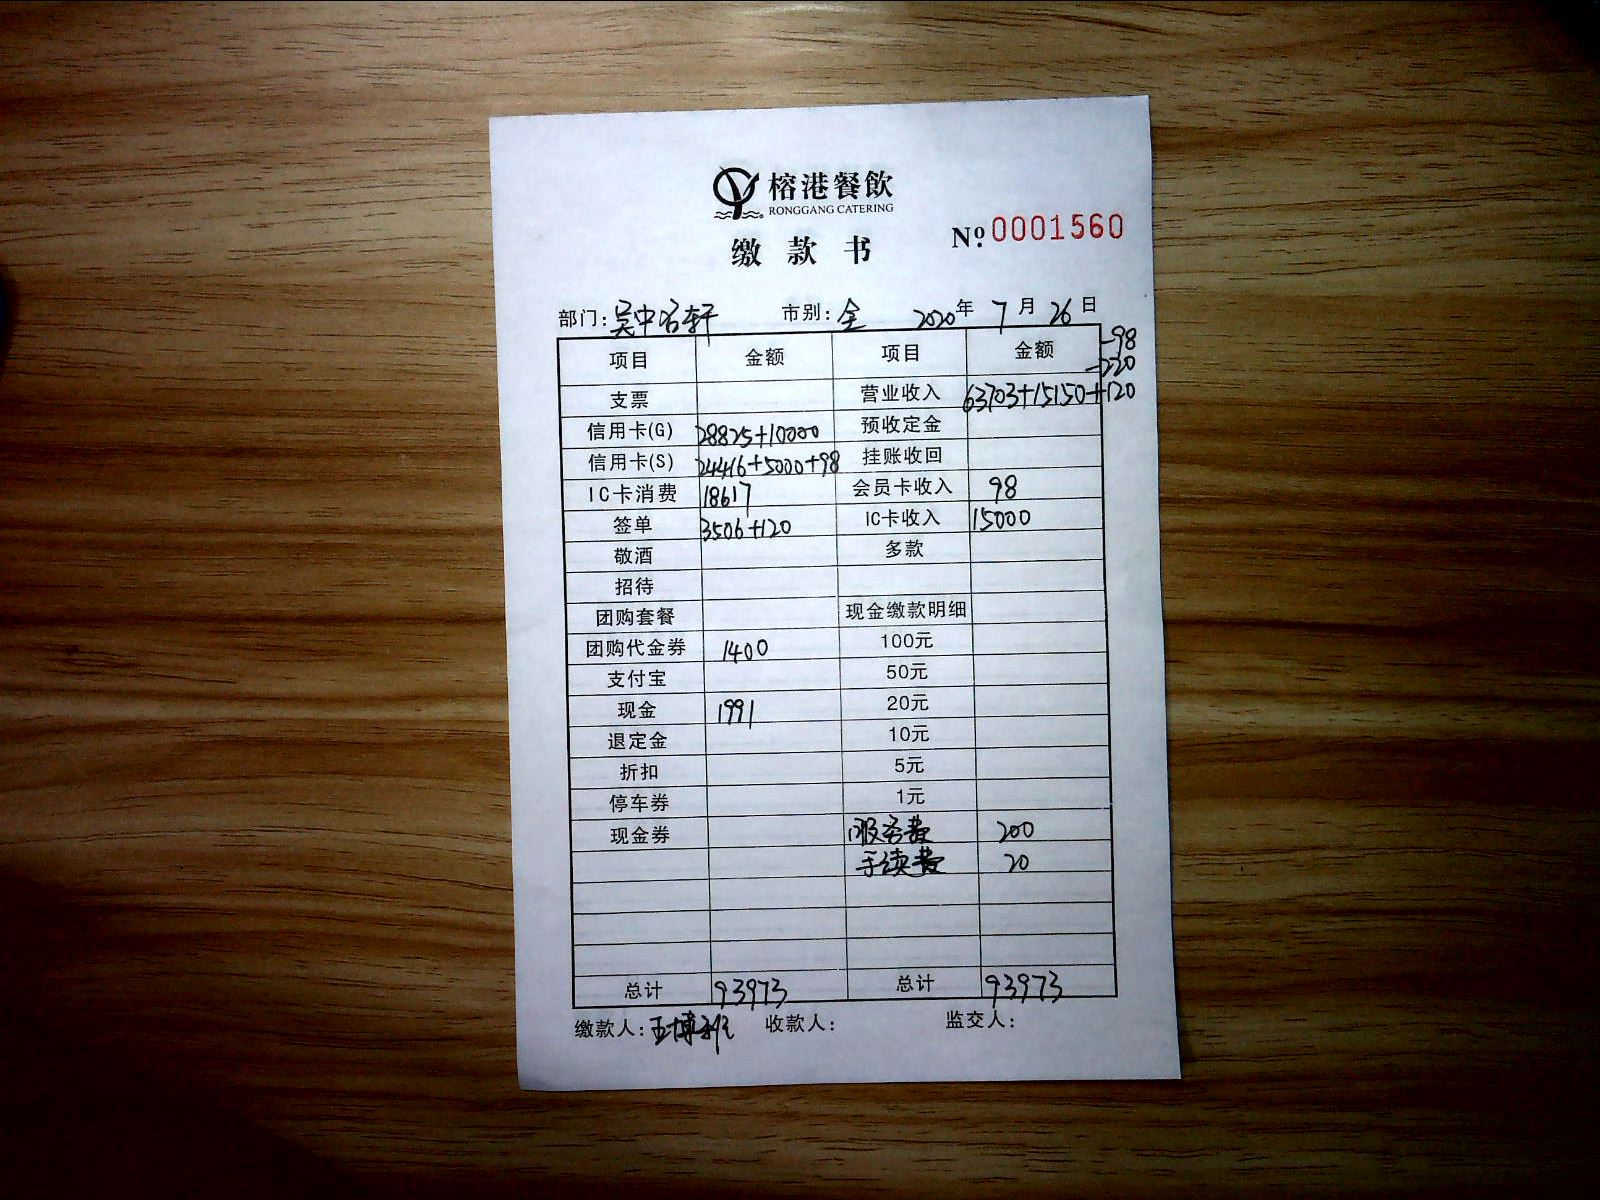 榕港餐飲
RONGGANG CATERING
缴款书
№ 0001560
部门: 吴中名轩 市别: 全 2020年 7月 26日
项目 金额 项目 金额 -98
-220
支票 营业收入 63703+15150+120
信用卡(G) 28825+10000 预收定金
信用卡(S) 24416+5000+98 挂账收回
IC卡消费 18617 会员卡收入 98
签单 3506+120 IC卡收入 15000
敬酒 多款
招待
团购套餐 现金缴款明细
团购代金券 1400 100元
支付宝 50元
现金 1991 20元
退定金 10元
折扣 5元
停车券 1元
现金券 服务费 200
手续费 20
总计 93973 总计 93973
缴款人: 王博 收款人: 监交人: